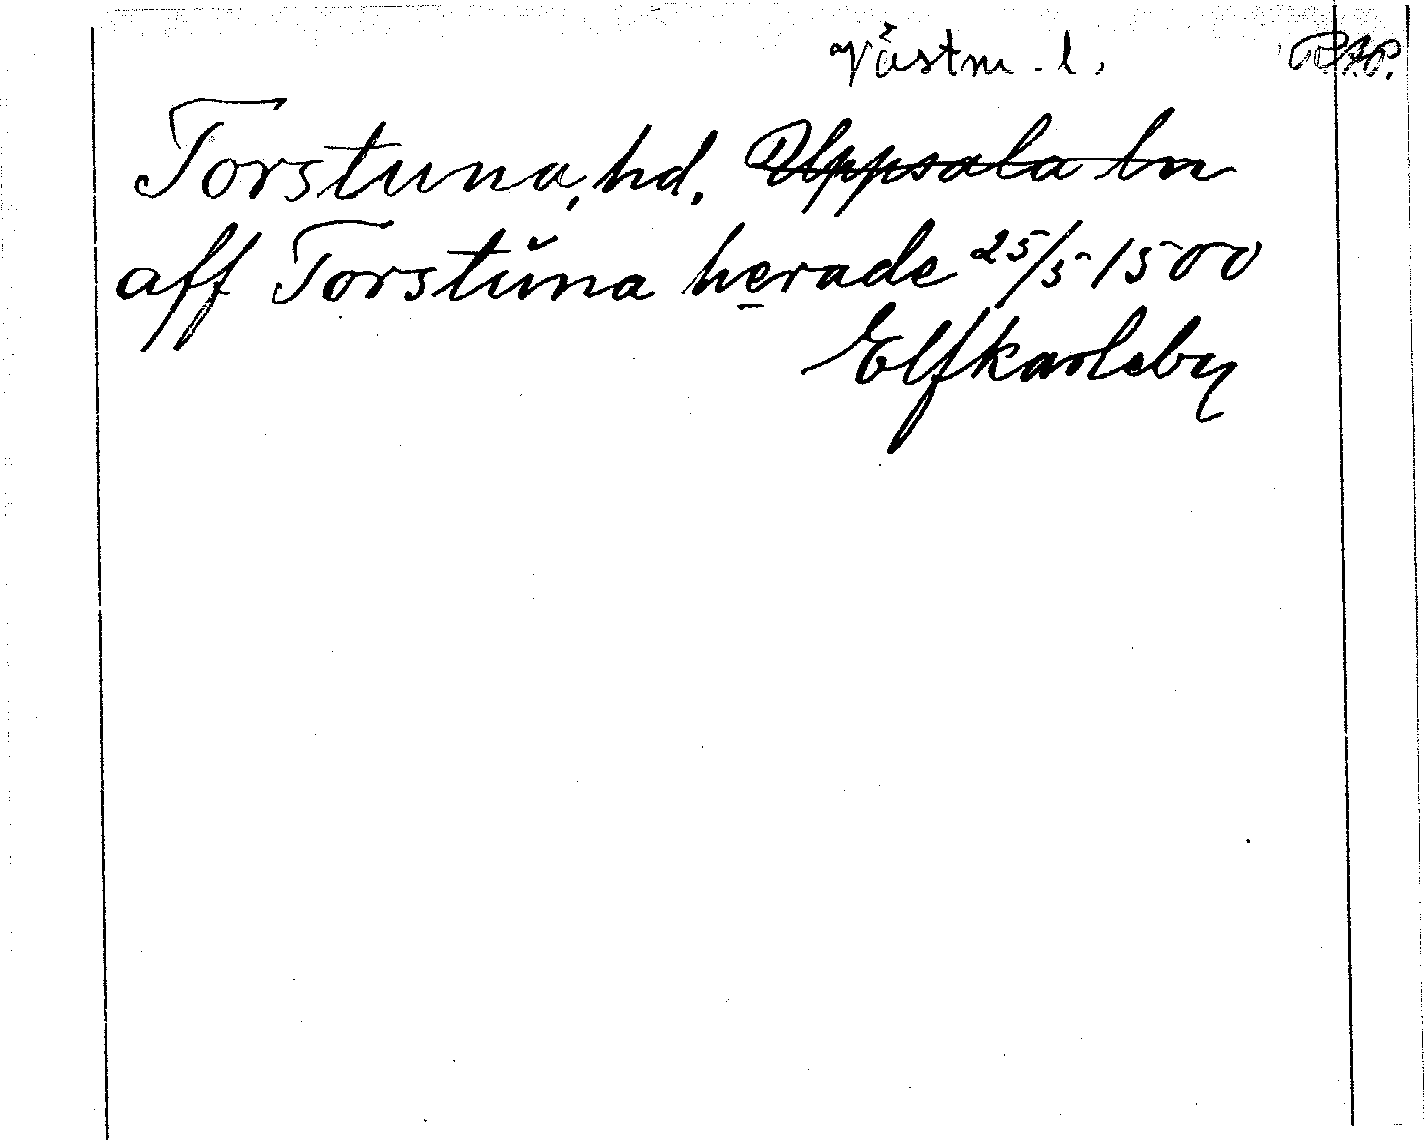 Västm. l. RAP.
Torstuna, hd. Uppsala ln
aff Torstŭna herade 25/5 1500
Elfkarleby